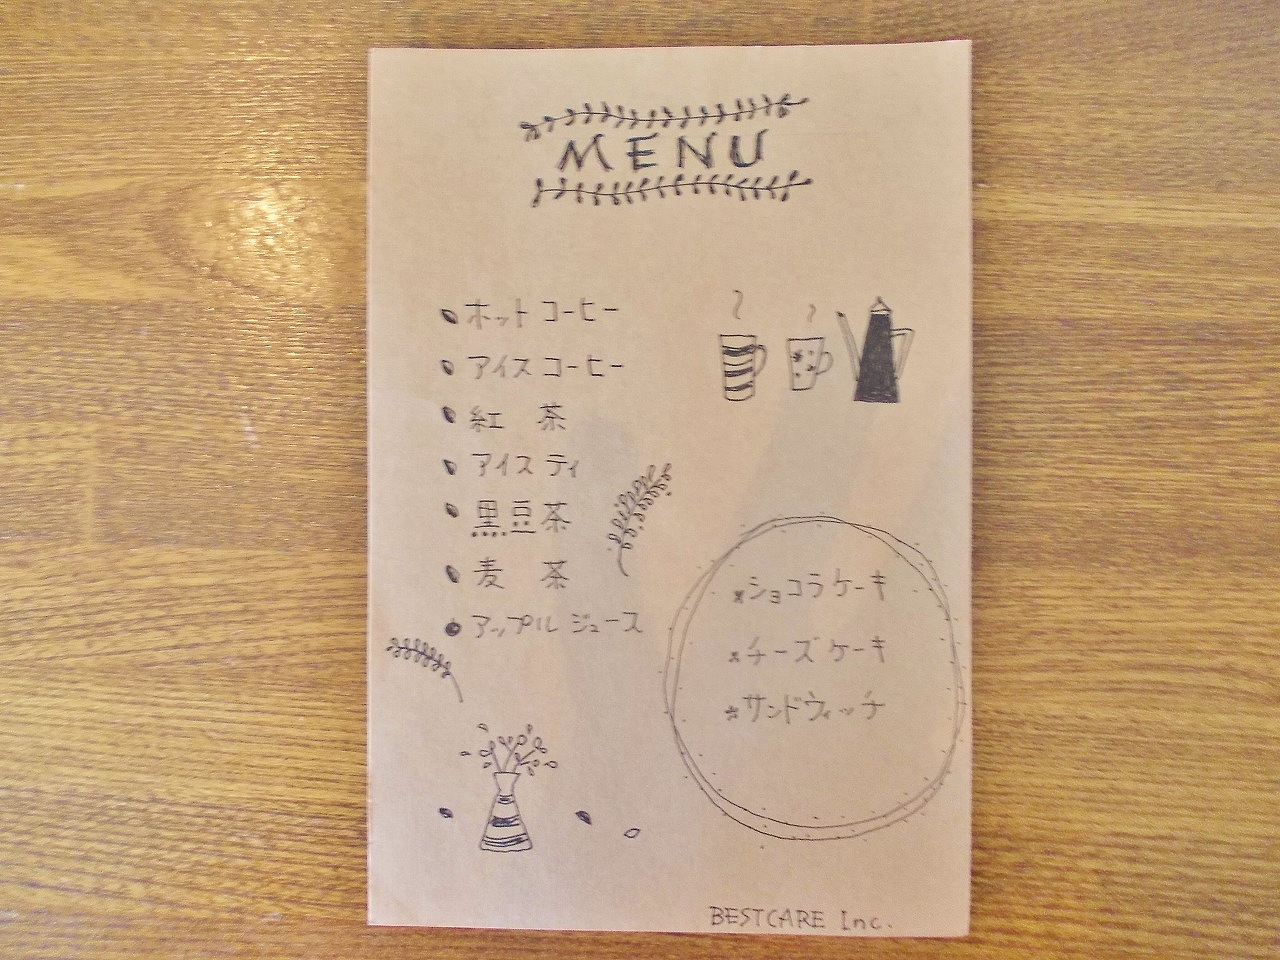 MENU
ホット コーヒー
アイス コーヒー
紅 茶
アイス ティ
黒豆茶
麦 茶
アップル ジュース
ショコラ ケーキ
チーズ ケーキ
サンドウィッチ
BESTCARE Inc.